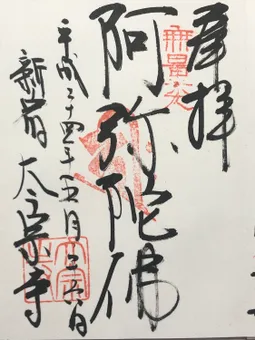 奉拝
無量光
阿弥陀佛
平成二十四年五月二十六日
新宿 太宗寺